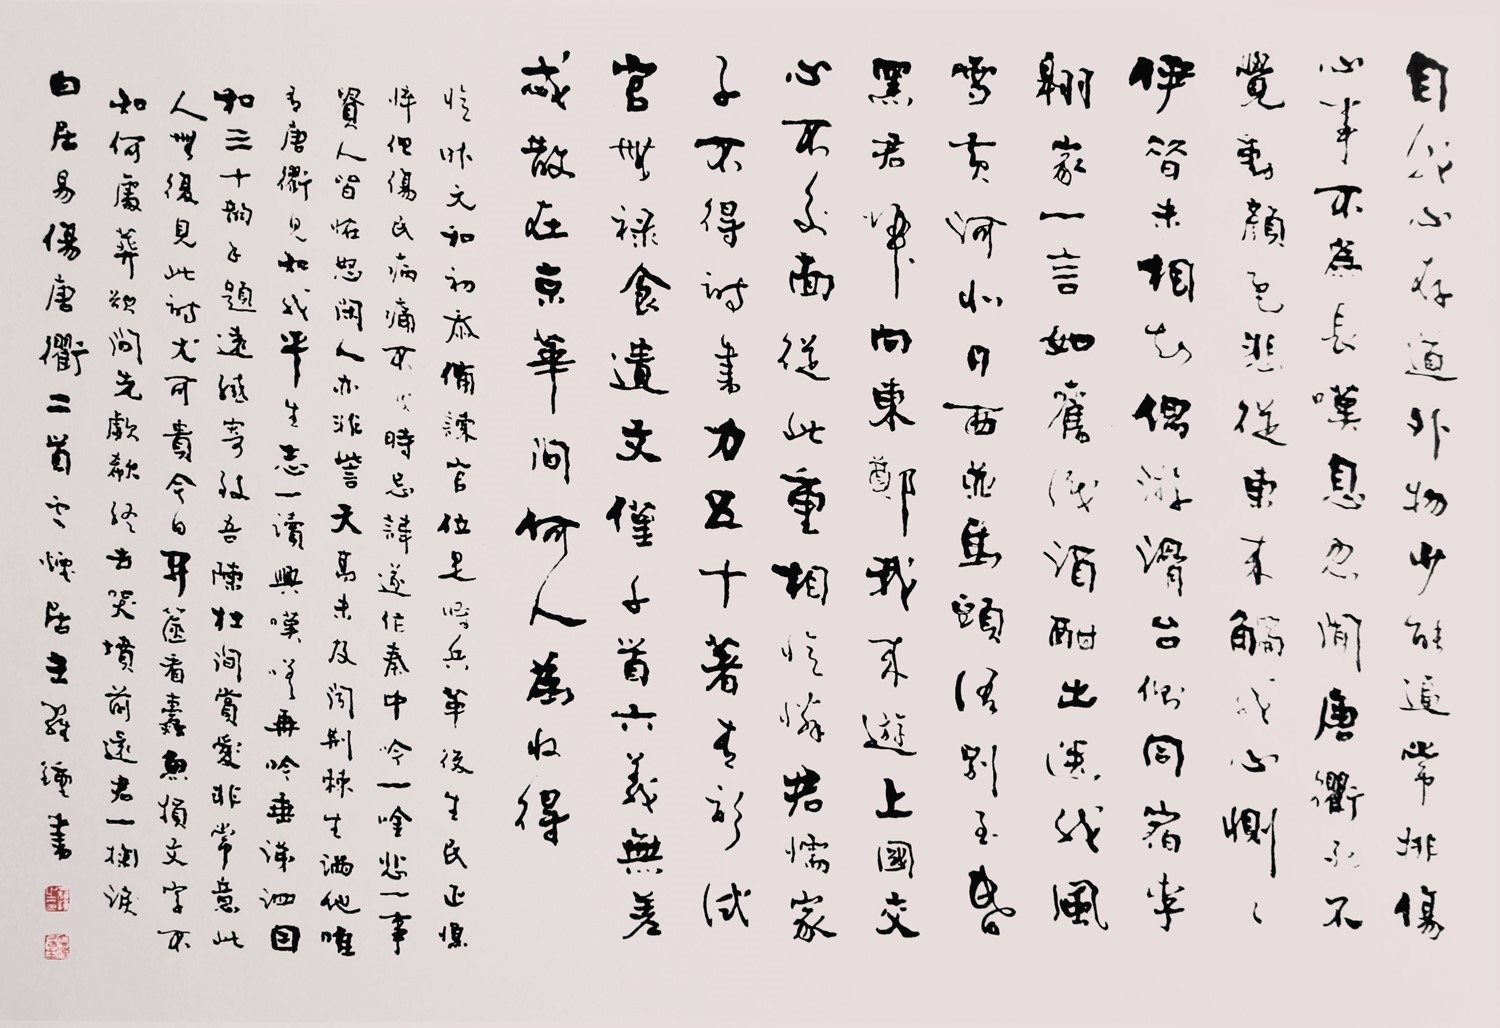 自我心存道外物少能逼常排傷
心事不為長嘆息忽聞唐衢死不
覺動顏色悲從東來觸我心惻〻
伊昔未相知偶游滑台側同宿李
翱家一言如舊識酒酣出送我風
雪黃河北日西並馬頭語別至昏
黑君歸向東鄭我來遊上國交
心不交面從此重相憶憐君儒家
子不得詩書力五十著青衫試
官無祿食遺文僅千首六義無差
忒散在京華間何人為收得
憶昨元和初忝備諫官位是時兵革後生民正憔
悴但傷民病痛不識時忌諱遂作秦中吟一吟悲一事
賢人皆怪怒閑人亦非訾天高未及聞荊棘生滿地唯
有唐衢見知我平生志一讀興嘆嗟再吟垂涕泗因
和三十韵手題遠緘寄致吾陳杜間賞愛非常意此
人無復見此詩尤可貴今日開篋看蠹魚損文字不
知何處葬欲問先歔欷終去哭墳前還君一掬淚
白居易傷唐衢二首 居主羅鍾書